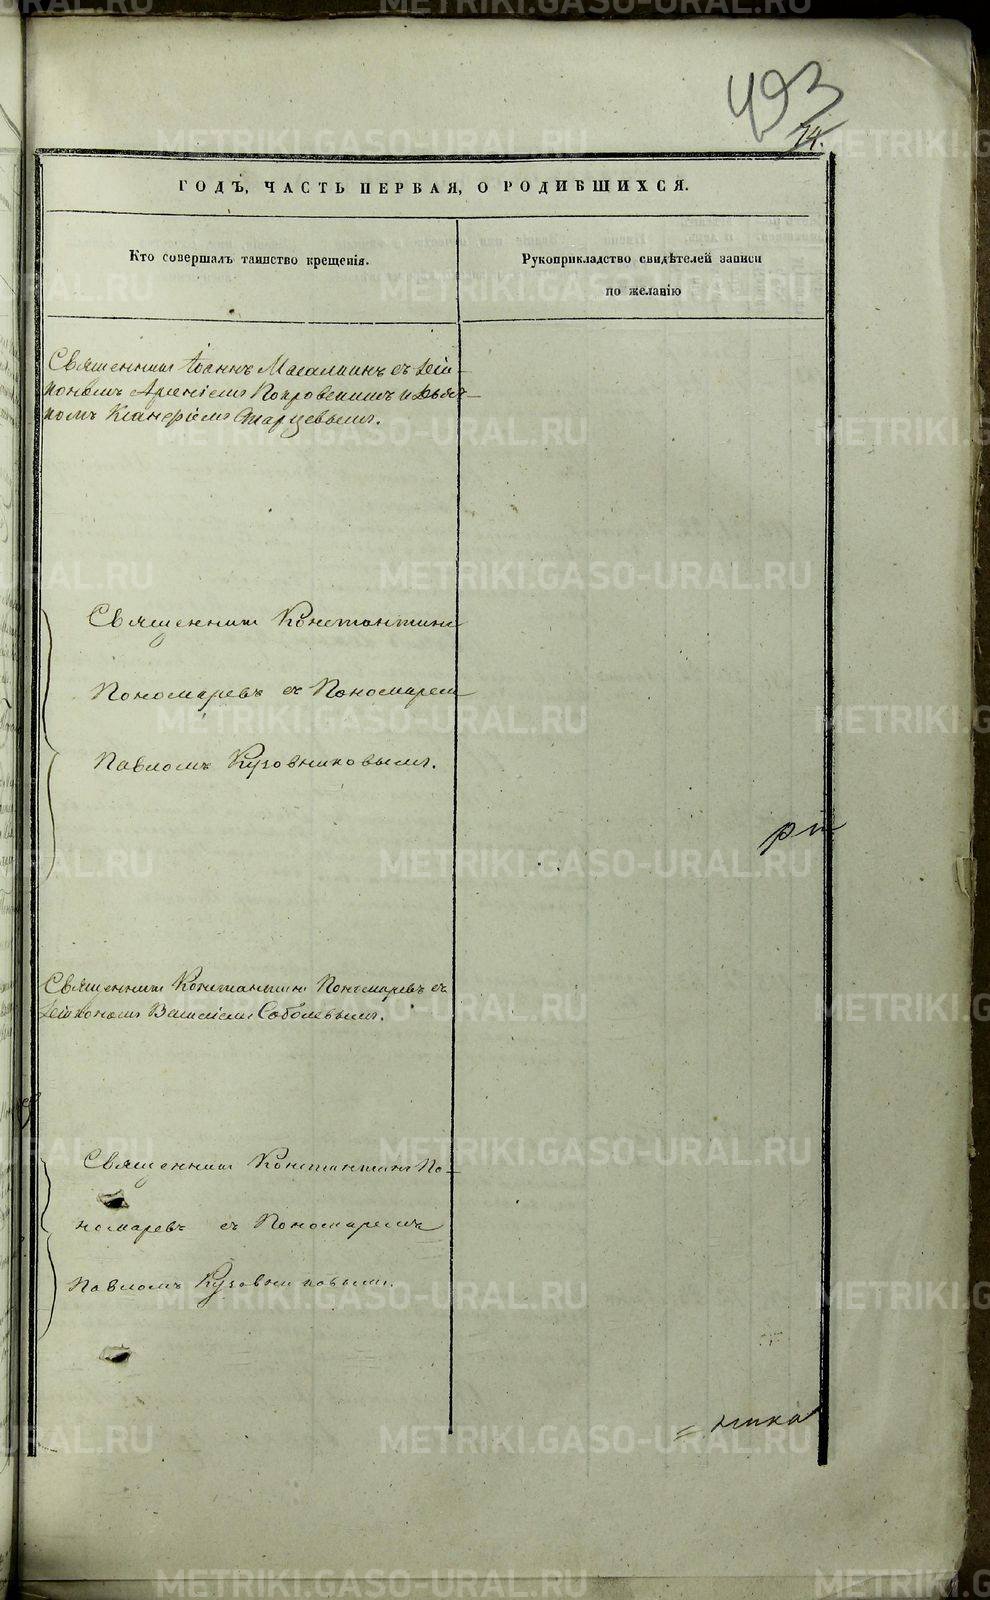 493
74.
ГОДЪ, ЧАСТЬ ПЕРВАЯ, О РОДИВШИХСЯ.
Кто совершалъ таинство крещенія.
Рукоприкладство свидѣтелей записи
по желанію
Священникъ Іоаннъ с Діа-
кономъ Арсеніемъ Покровскимъ и Дьяч-
комъ Старцевымъ.
Священникъ Константинъ
Пономаревъ съ Пономаремъ
Павломъ Кузовниковымъ.
Священникъ Константинъ Пономаревъ съ
Діакономъ Василіемъ Соболевымъ.
Священникъ Константинъ По-
номаревъ съ Пономаремъ
Павломъ Кузовниковымъ.
METRIKI.GASO-URAL.RU